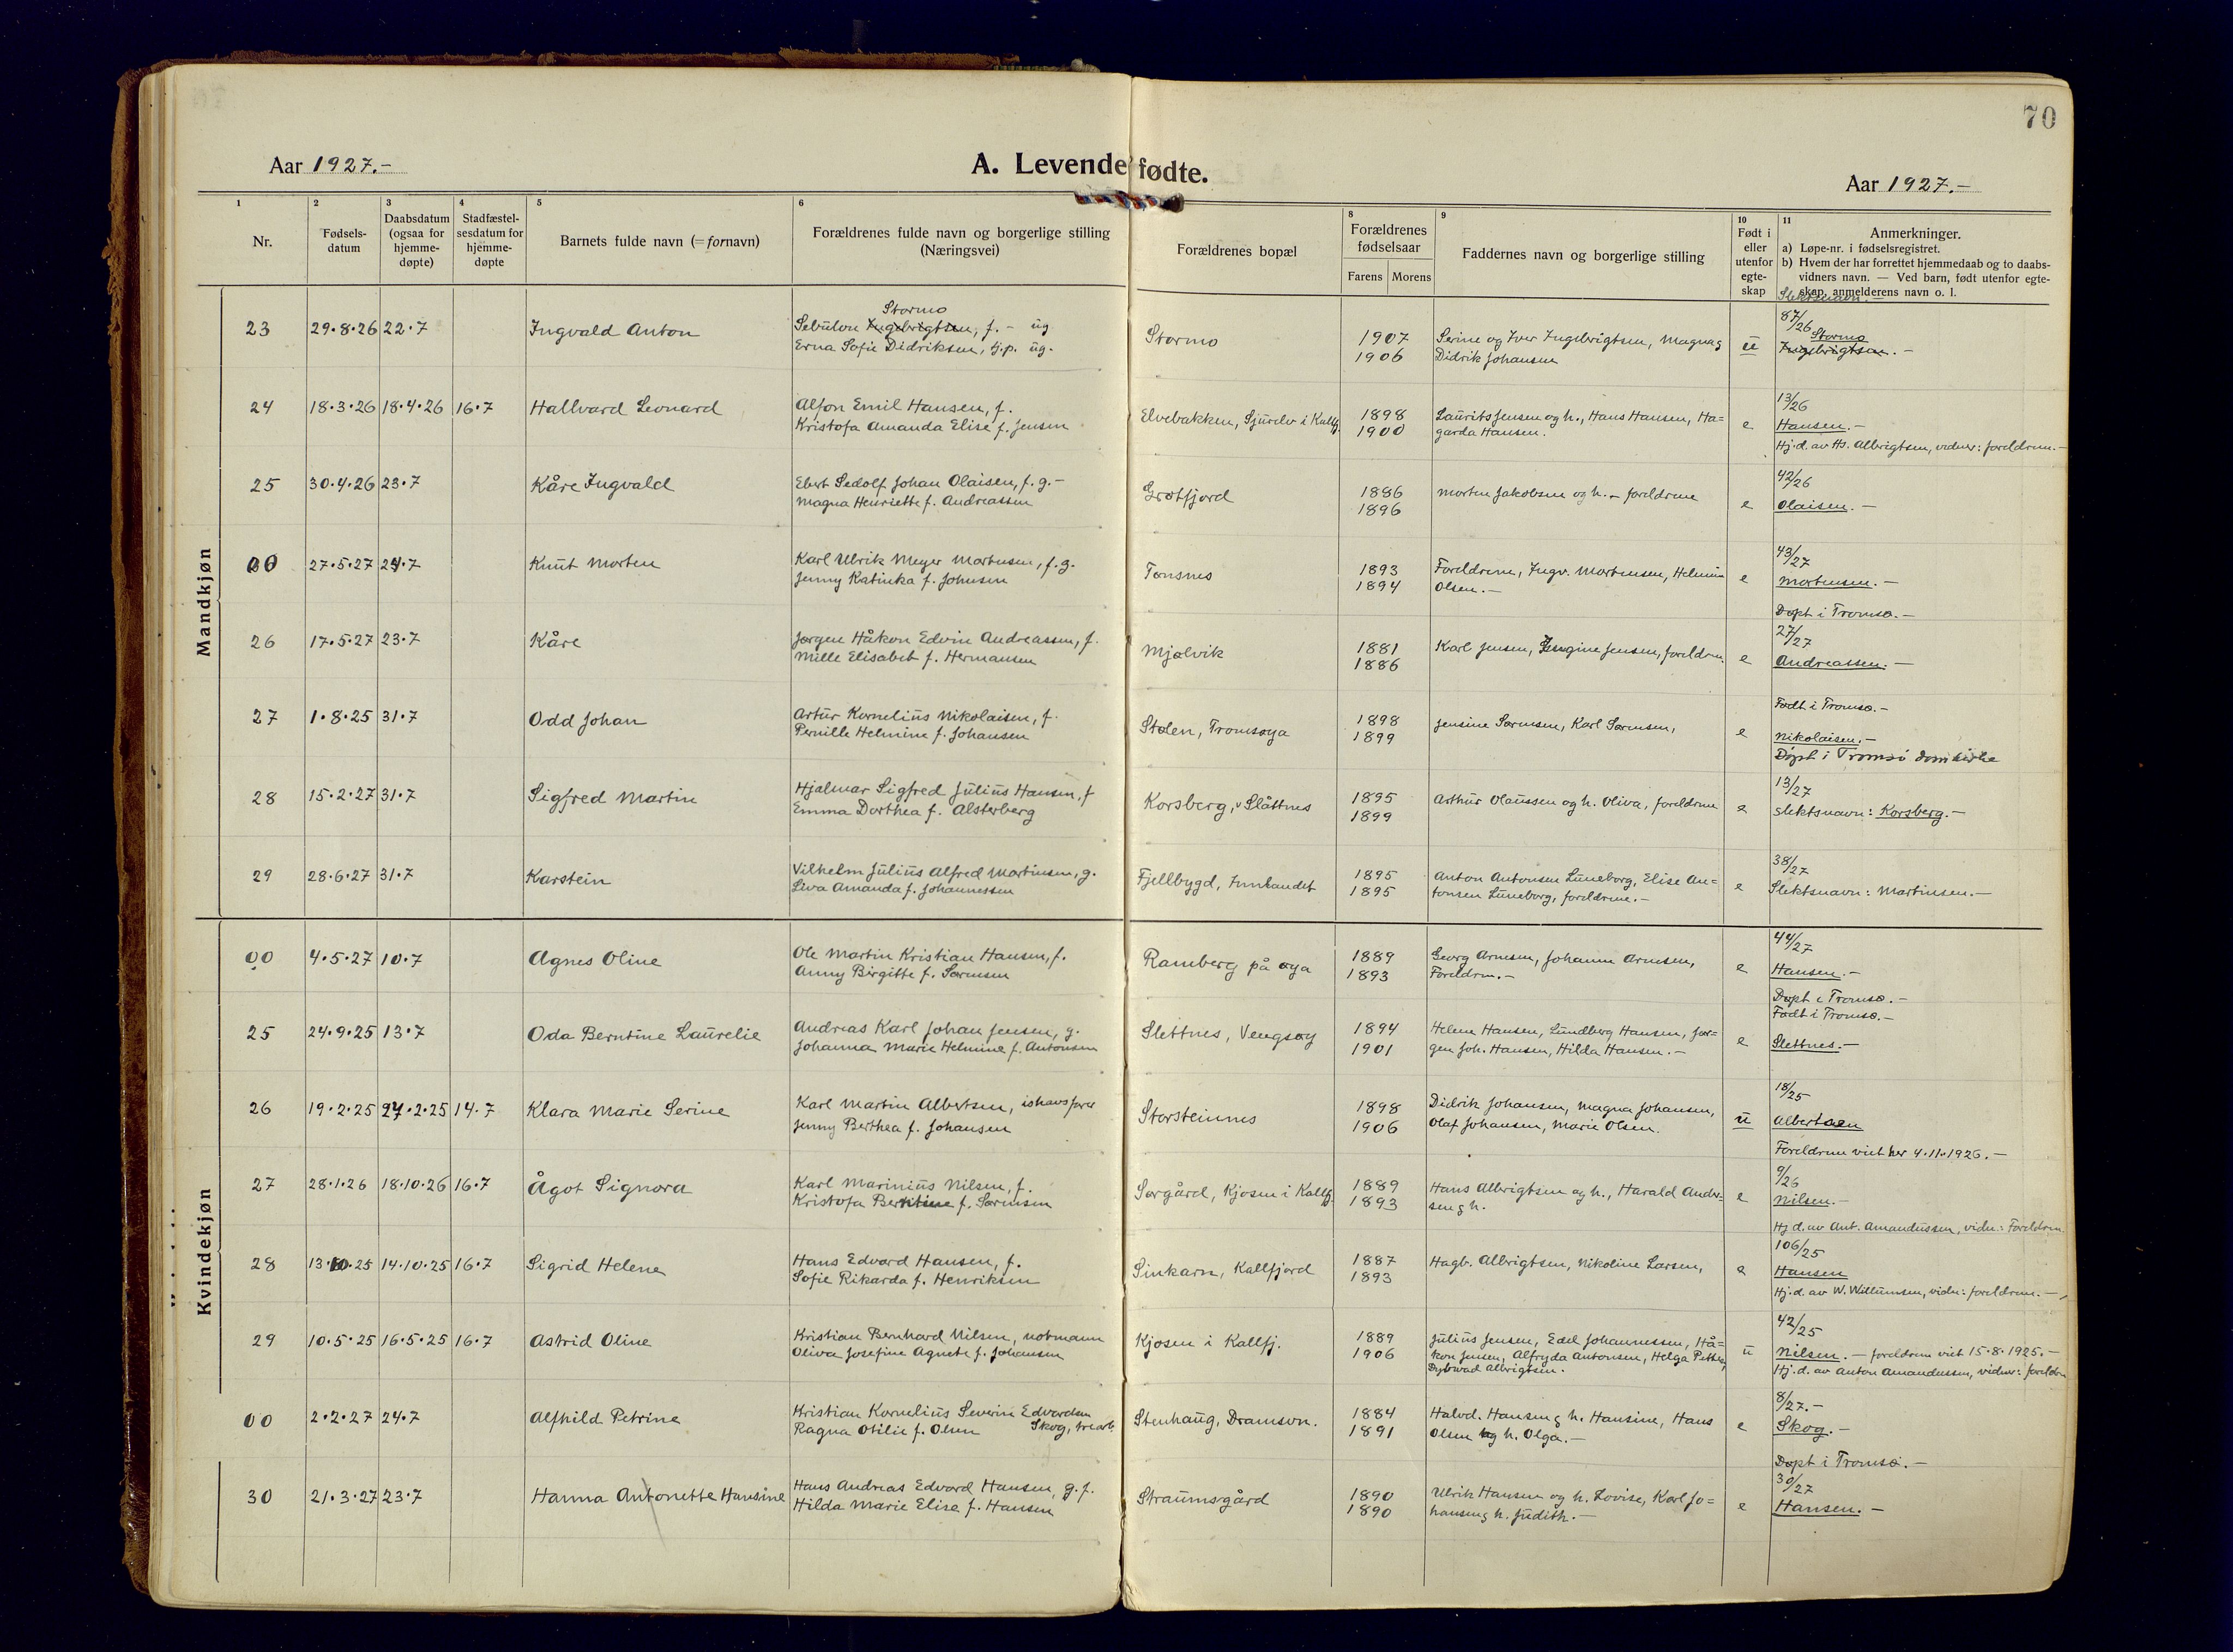 70
Aar 1927.-
A. Levende fødte.
Aar 1927.-
1 2 3 4 5 6 8 9 10 11
Nr.
Fødsels-datum
Daabsdatum (ogsaa for hjemme-døpte)
Stadfæstel-sesdatum for hjemme-døpte
Barnets fulde navn (=fornavn)
Forældrenes fulde navn og borgerlige stilling (Næringsvei)
Forældrenes bopæl
Forældrenes fødselsaar
Farens Morens
Faddernes navn og borgerlige stilling
Født i eller utenfor egte-skap
Anmerkninger.
a) Løpe-nr. i fødselsregistret.
b) Hvem der har forrettet hjemmedaab og to daabs-
vidners navn. — Ved barn, født utenfor egte-
skap, anmelderens navn o. l.
Slektsnavn.-
Mandkjøn
23 29.8.26 22.7 Ingvald Anton
Stormo
Sebulon Ingebrigtsen, f. - ug
Erna Sofie Didriksen, tj.p. ug.
Stormo
1907
1906
Serine og Iver Ingebrigtsen, Magna og
Didrik Johansen
u
87/26
Stormo
Ingebrigtsen.-
24 18.3.26 18.4.26 16.7 Hallvard Leonard
Alfon Emil Hansen, f.
Kristofa Amanda Elise f. Jensen
Elvebakken, Sjurelv i Kallfj.
1898
1900
Laurits Jensen og h., Hans Hansen, Ha-
garda Hansen.
e
13/26
Hansen.-
Hj.d. av Hs. Albrigtsen, vidner: foreldrene.-
25 30.4.26 23.7 Kåre Ingvald
Ebert Sedolf Johan Olaisen, f.g.-
Magna Henriette f. Andreassen
Grøtfjord
1886
1896
Morten Jakobsen og h. - foreldrene
e
42/26
Olaisen.-
00 27.5.27 24.7 Knut Morten
Karl Ulrik Meyer Mortensen, f.g.
Jenny Katinka f. Johnsen
Tønsnes
1893
1894
Foreldrene, Ingv. Mortensen, Helmine
Olsen.-
e
43/27
Mortensen.-
Døpt i Tromsø.-
26 17.5.27 23.7 Kåre
Jørgen Håkon Edvin Andreassen, f.
Mille Elisabet f. Hermansen
Mjølvik
1881
1886
Karl Jensen, Jensine Jensen, foreldrene
e
27/27
Andreassen.-
27 1.8.25 31.7 Odd Johan
Artur Kornelius Nikolaisen, f.
Pernille Helmine f. Johansen
Stølen, Tromsøya
1898
1899
Jensine Sørensen, Karl Sørensen,
e
Født i Tromsø.-
Nikolaisen.-
Døpt i Tromsø domkirke
28 15.2.27 31.7 Sigfred Martin
Hjalmar Sigfred Julius Hansen, f
Emma Dorthea f. Alsterberg
Korsberg, v Slåttnes
1895
1899
Arthur Olaussen og h. Oliva, foreldrene
e
13/27
Slektsnavn: Korsberg.-
29 28.6.27 31.7 Karstein
Vilhelm Julius Alfred Martinsen, g.
Liva Amanda f. Johannessen
Fjellbygd, Innlandet
1895
1895
Anton Antonsen Luneborg, Elise An-
tonsen Luneborg, foreldrene.-
e
38/27
Slektsnavn: Martinsen.-
Kvindekjøn
00 4.5.27 10.7 Agnes Oline
Ole Martin Kristian Hansen, f.
Anny Birgitte f. Sørensen
Ramberg på øya
1889
1893
Georg Arnesen, Johanne Arnesen,
Foreldren.-
e
44/27
Hansen.-
Døpt i Tromsø.-
25 24.9.25 13.7 Oda Berntine Laurelie
Andreas Karl Johan Jensen, g.
Johanna Marie Helmine f. Antonsen
Slettnes, Vengsøy
1894
1901
Helene Hansen, Lundberg Hansen, Jør-
gen Joh. Hansen, Hilda Hansen.-
e
Født i Tromsø.-
Slettnes.-
26 19.2.25 27.2.25 14.7 Klara Marie Serine
Karl Martin Albertsen, ishavsfarer
Jenny Berthea f. Johansen
Storsteinnes
1898
1906
Didrik Johansen, Magna Johansen,
Olaf Johansen, Marie Olsen.
u
18/25
Albertsen
Foreldrene viet her 4.11.1926.-
27 28.1.26 18.10.26 16.7 Ågot Signora
Karl Marinius Nilsen, f.
Kristofa Berntine f. Sørensen
Sørgård, Kjosen i Kallfj.
1889
1893
Hans Albrigtsen og h., Harald Ander-
sen og h.
e
9/26
Nilsen.-
Hj.d. av Ant. Amandussen, vidn.: Foreldrene
28 13.10.25 14.10.25 16.7 Sigrid Helene
Hans Edvard Hansen, f.
Sofie Rikarda f. Henriksen
Sinkarn, Kallfjord
1887
1893
Hagb. Albrigtsen, Nikoline Larsen,
e
106/25
Hansen
Hj.d. av W. Willumsen, vidn: foreldrene.-
29 10.5.25 16.5.25 16.7 Astrid Oline
Kristian Bernhard Nilsen, notmann
Oliva Josefine Agnete f. Johansen
Kjosen i Kallfj.
1889
1906
Julius Jensen, Edel Johannessen, Hå-
kon Jensen, Alfryda Antonsen, Helga Pettersen,
Dybwad Albrigtsen.
u
42/25
Nilsen.- foreldrene viet 15.8.1925.-
Hj.d. av Anton Amandussen, vidner: foreldre
00 2.2.27 24.7 Alfhild Petrine
Kristian Kornelius Severin Edvardsen
Skog, trearb.
Ragna Otilie f. Olsen
Stenhaug, Dramsvn.
1884
1891
Halvd. Hansen og h. Hansine, Hans
Olsen og h. Olga.-
e
8/27.-
Skog.-
Døpt i Tromsø.-
30 21.3.27 23.7 Hanna Antonette Hansine
Hans Andreas Edvard Hansen, g.f.
Hilda Marie Elise f. Hansen
Straumsgård
1890
1890
Ulrik Hansen og h. Lovise, Karl Jo-
hansen og h. Judith.-
e
30/27
Hansen.-